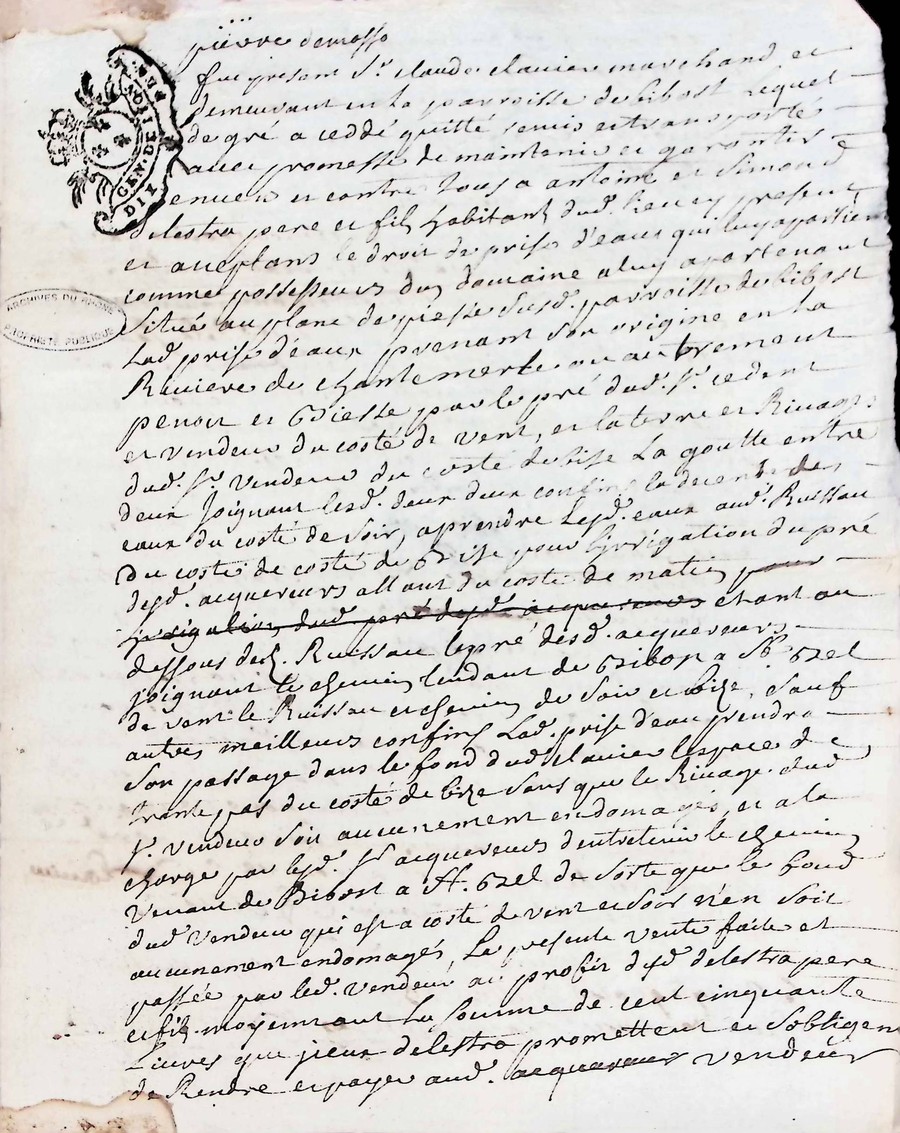 pierre demosso
fut present Sr. claude clavier marchand et
demeurant en la parroisse de bibost lequel
de gré a ceddé quitté remis et transporté
avec promesse de maintenir et garantir
envers et contre tous a antoine et Simond
delestra pere et fils habitant dud. lieu cy present
et acceptans le droit de prise d'eaux qui luy apartient
comme possesseur du domaine a luy apartenant
Situé au plane de susd. parroisse de bibost
Lad. prise d'eaux prenant Son origine en la
Riviere de chantemerle ou autrement
penon et par le pré dud. Sr. cedent
et vendeur du costé de vent, et la terre et Rivage
dud. Sr. vendeur du costé de bise La goutte entre
deux Joignant lesd. deux confins la des
eaux du costé de Soir, a prendre lesd. eaux aud. Ruissau
du costé de costé de bise pour l'irrigation du pré
desd. acquereurs allant du costé de matin pour
irrigation dud. pré desd. acquereurs etant au
dessous desd. Ruissau le pré desd. acquereurs
joignant le chemin tendant de Bibost a St. bel
de vent le Ruissau et chemin de Soir et bize, Sauf
autres meilleurs confins Lad. prise d'eau prendra
Son passage dans le fond dud. clavier l'espace de
trente pas du costé de bize Sans que le Rivage dud
Sr. vendeur Soit aucunement endomagés, et a la
charge par lesd. Sr. acquereurs d'entretenir le chemin
venant de Bibost a St. bel de Sorte que le fond
dud vendeur qui est a costé de vent et Soir n'en Soit
aucunement endomagés, La presente vente faite et
passée par led. vendeur au profit desd delestra pere
et fils moyennant la Somme de cent cinquante
Livres que delestra promettent et Sobligent
de Rendre et payer aud. acquereur vendeur
GEN. DE
DIX
ARCHIVES DU RHONE
PROPRIETE PUBLIQUE